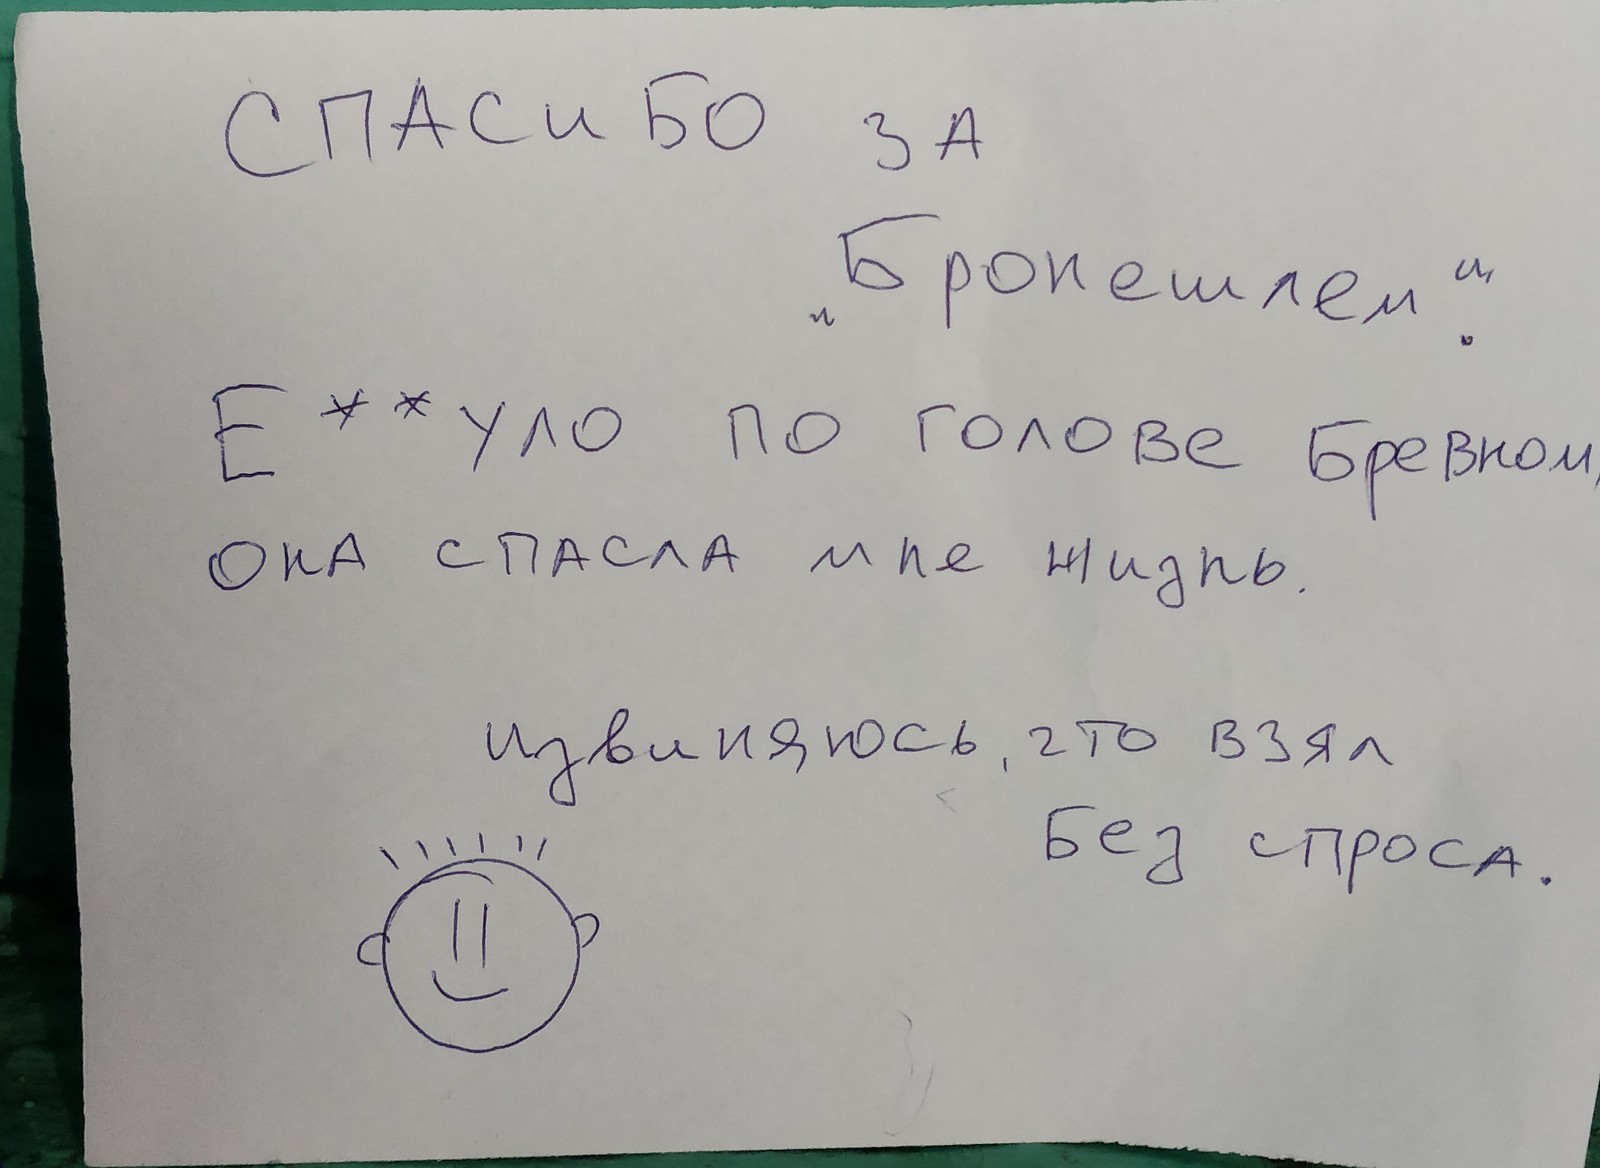 СПАСИБО ЗА
„Бронешлем".
Е**уло по голове бревном,
она спасла мне жизнь.
извиняюсь, что взял
без спроса.